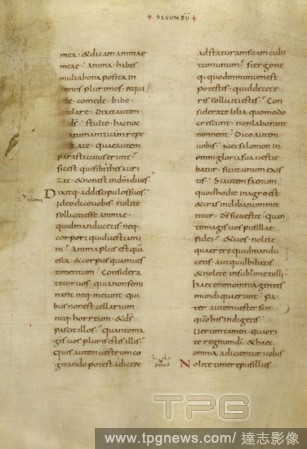 + SECUNDU +
mea · & dicam animae
meae · anima · habes
multa bona posita in
annos plurimos · requi
esce · comede · bibe ·
epulare · Dixit autem
illi ds · stulte hac noc
te animam tuam repe
tunt a te · quae autem
parasti cuius erunt ·
sic est qui sibi thesauri
zat · & non est in dm dives ·
Dixitq · ad discipulos suos ·
ideo dico vobis · nolite
solliciti esse animae
quid manducetis neq ·
corpori quid vestiami
ni · Anima plus est quam
esca · & corpus quam ves
timentum · Considera
te corvos · quia non semi
nant neq · metunt · qui
bus non est cellarium
neq · horreum · & ds
pascit illos · quanto ma
gis vos pluris estis illis ·
Quis autem vestrum co
gitando potest adicere
ad staturam suam cubi
tum unum · Si ergo ne
q · quod minimum est
potestis · quid de cete
ris solliciti estis · Con
siderate lilia quomodo
crescunt · non laborant
non nent · Dico autem
vobis · nec salomon in
omni gloria sua vestie
batur · sicut unum ex is
tis · Si autem faenum
quod hodie in agro est
& cras in clibanum mit
titur · ds sic vestit · quan
to magis vos pusillae
fidei · & vos · nolite
quaerere quid mandu
cetis · aut quid bibatis
& nolite in sublime tolli ·
haec enim omnia gentes
mundi quaerunt · Pa
ter autem vester scit
quoniam his indigetis ·
Verumtamen quaeri
te regnum di · & haec
omnia adicientur vobis
Nolite timere pusillus
TPG
www.tpgnews.com/達志影像